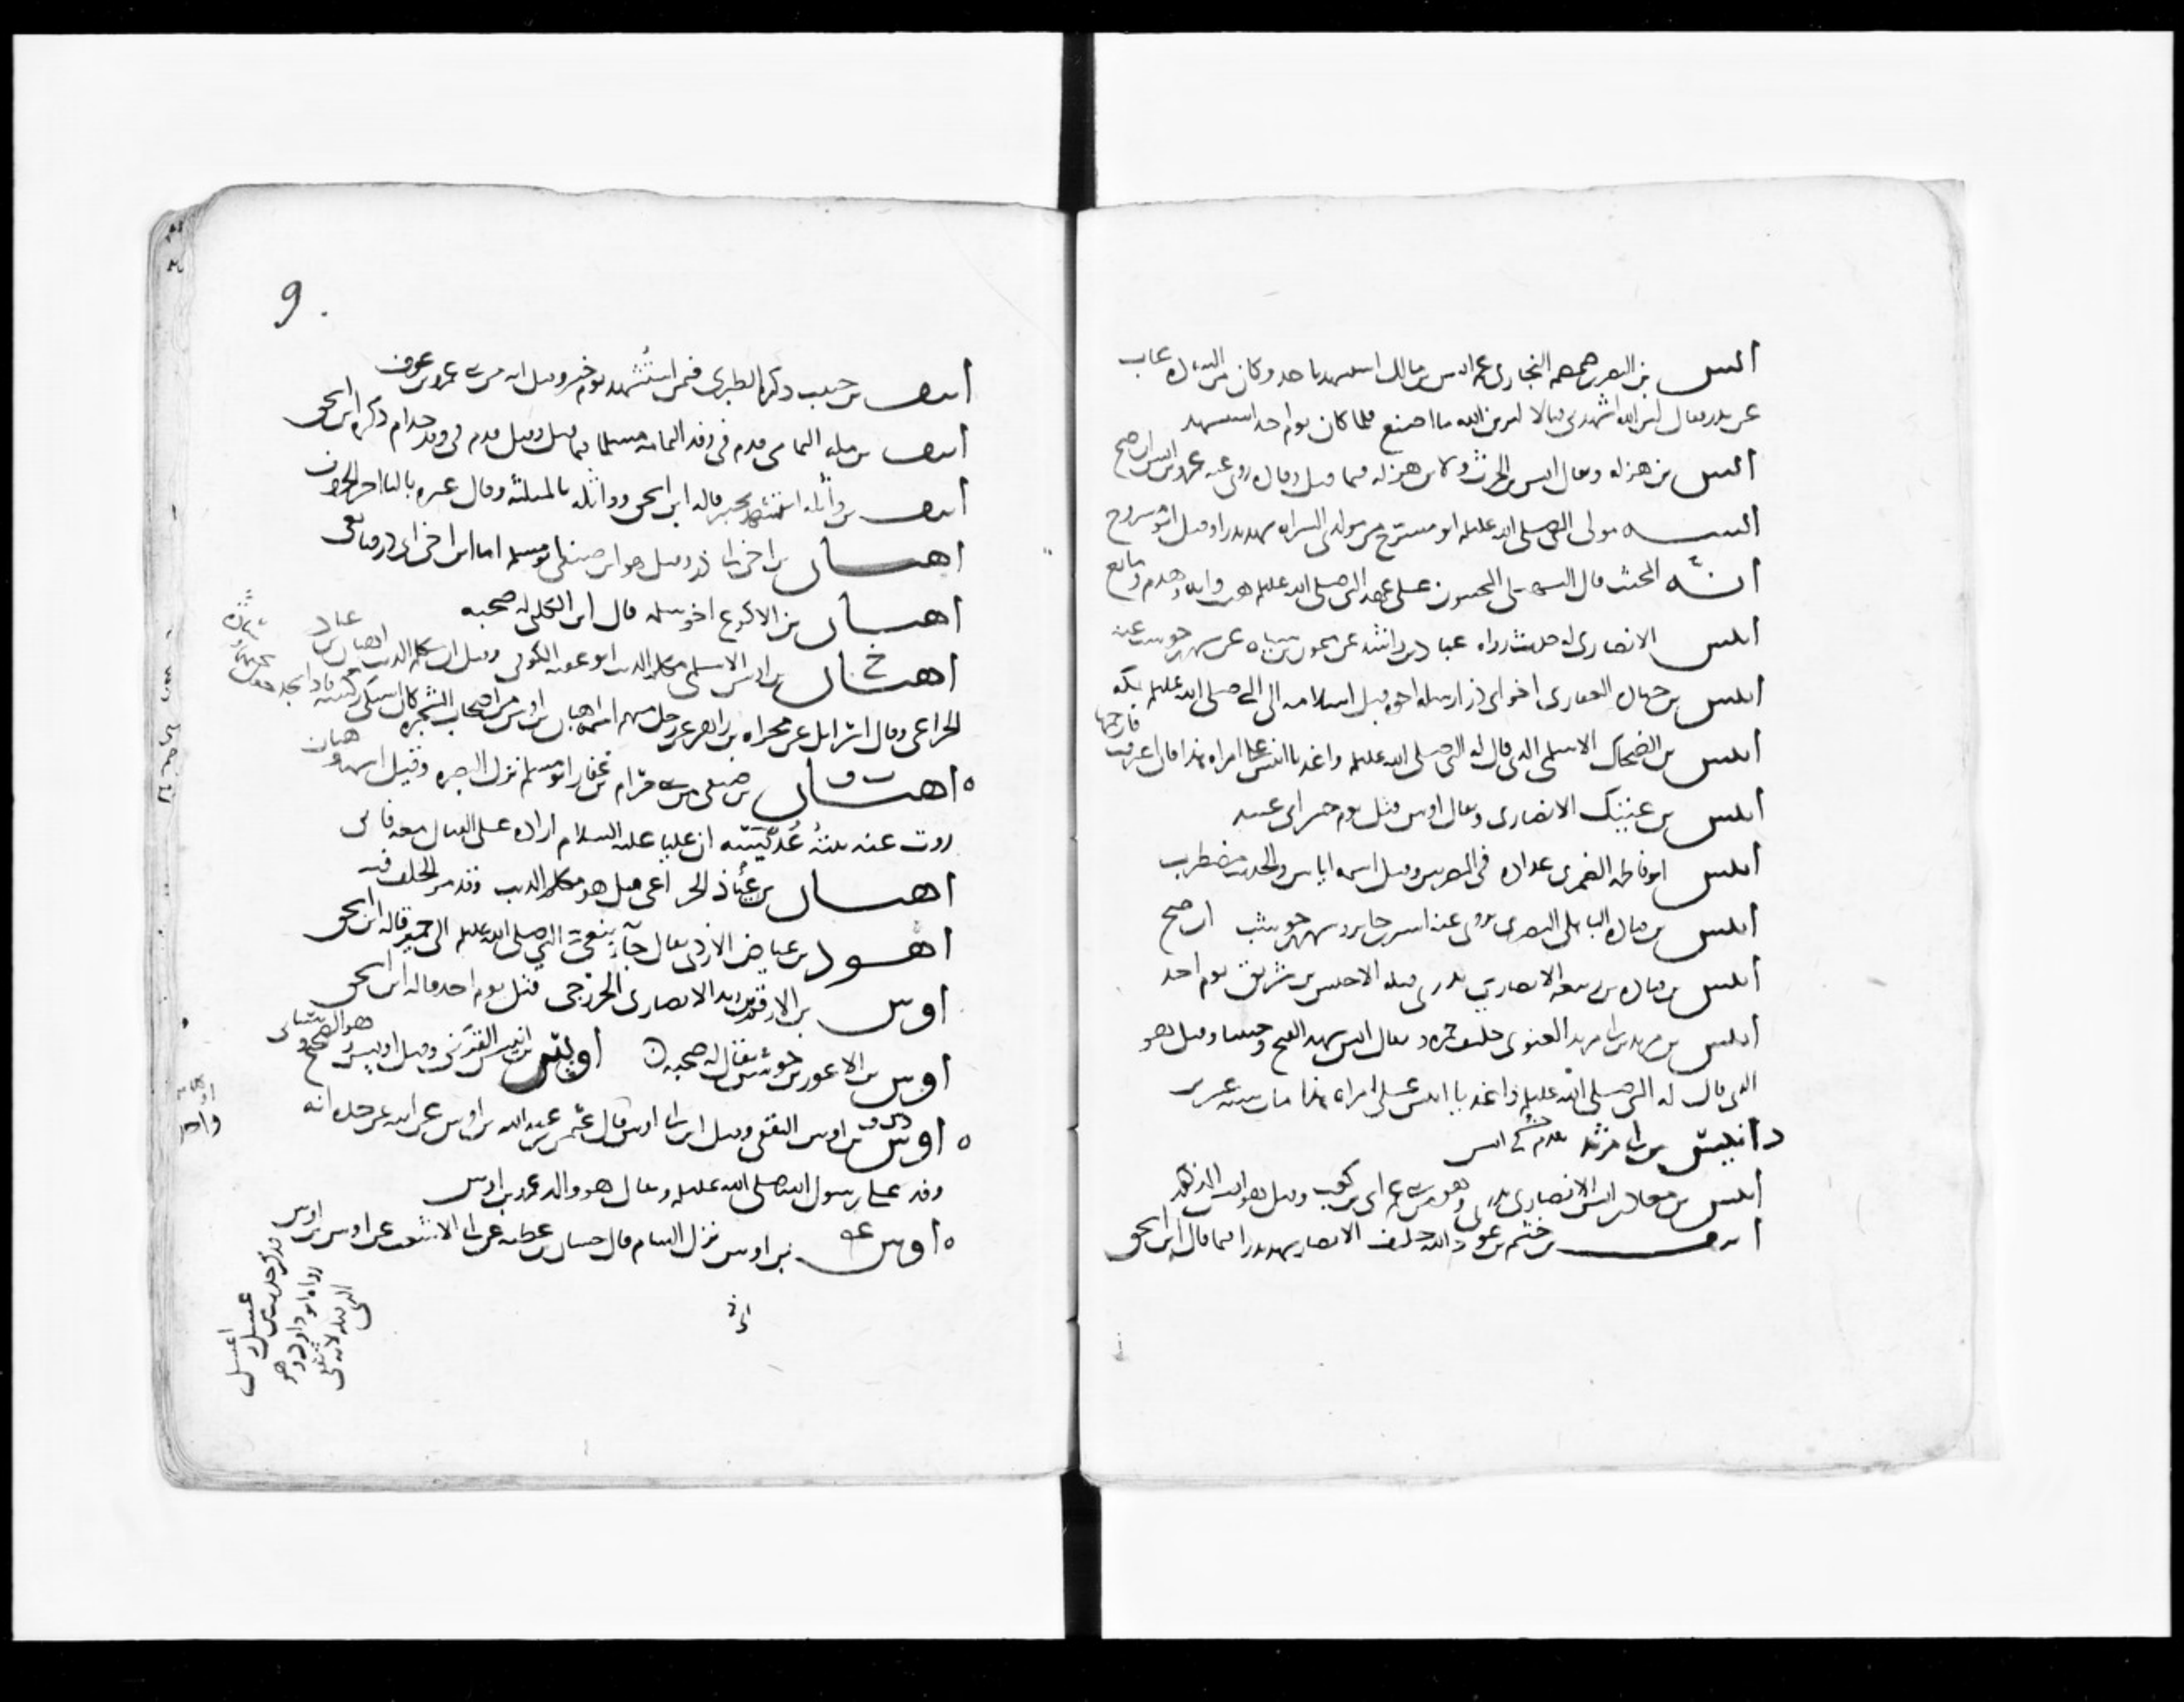 انس بن النضر بن ضمضم النجاري عم انس بن مالك استشهد باحد وكان من السادة غاب
عن بدر فقال لئن الله اشهدني قتالا ليرين الله ما اصنع فلما كان يوم احد استشهد
انس بن هزله ويقال انس بن الحرث ولابن هزله فيما قيل وقال روى عنه عمرو بن انس ان صح
انسه مولى النبي صلى الله عليه ابو مسرح من مولدي السراه شهد بدرا وقيل ابو سروح
انه المخنث قال السهيلي المخنثون على عهد النبي صلى الله عليه هيت وانه وهدم وماتع
انيس الانصاري له حديث رواه عباد بن راشد عن ميمون بن سياه عن شهر بن حوشب عنه
انيس بن جناده الغفاري اخو ابي ذر ارسله اخوه قبل اسلامه الى النبي صلى الله عليه بمكه
انيس بن الضحاك الاسلمي الذي قال له النبي صلى الله عليه واغد يا انيس على امراه هذا فان اعترفت فارجمها
انيس بن عتيك الانصاري ويقال اوس قتل يوم جسر ابي عبيد
انيس ابو فاطمه الضمري عداده في المصريين وقيل اسمه اياس والحديث مضطرب
انيس بن قتاده الباهلي البصري يروي عنه اسير بن جابر وشهر بن حوشب ان صح
انيس بن قتاده بن ربيعه الانصاري بدري قتله الاخنس بن شريق يوم احد
انيس بن مرثد بن ابي مرثد الغنوي حليف حمزه ويقال انس شهد الفتح وحنينا وقيل هو
الذي قال له النبي صلى الله عليه واغد يا انيس على امراه هذا مات سنه عشرين
د انيس بن ابي مرثد تقدم في انس
انيس بن معاذ بن انس الانصاري بدري وهو من بني عم ابي بن كعب وقيل هو انس
انيف بن جشم بن عوذ الله حليف الانصار شهد بدرا فيما قال ابن اسحق
9
انيف بن حبيب ذكره الطبري فيمن استشهد يوم خيبر وقيل انه من بني عمرو بن عوف
انيف بن مله اليمامي قدم في وفد اليمامه مسلما فيما قيل وقيل قدم في وفد جذام ذكره ابن اسحق
انيف بن واثله استشهد بخيبر قاله ابن اسحق وواثله بالمثلثه وقال غيره بالياء اخر الحروف
اهبان بن اخت ابي ذر وقيل هو ابن صيفي ابو مسلم اما ابن اخت ابي ذر فتابعي
اهبان بن الاكوع اخو سلمه قال ابن الكلبي له صحبه
اهبان بن اوس الاسلمي مكلم الذئب ابو عقبه الكوفي وقيل ان مكلم الذئب اهبان بن عياذ
الخزاعي وقال اسرائيل عن مجزاه بن زاهر عن رجل منهم اسمه اهبان بن اوس من اصحاب الشجره كان اشتكى ركبته
اهبان بن صيفي من بني حرام بن غفار ابو مسلم نزل البصره وقيل اسمه وهبان
روت عنه بنته عديسه ان عليا عليه السلام اراده على القتال معه فابى
اهبان بن عياذ الخزاعي قيل هو مكلم الذئب وقد مر الخلف فيه
اهود بن عياض الازدي يقال جاء بنعي النبي صلى الله عليه الى حمير قاله ابن اسحق
اوس بن الارقم بن زيد الانصاري الخزرجي قتل يوم احد قاله ابن اسحق
اوس بن الاعور بن جوشن يقال له صحبه ه اويس بن انيس القرني وقيل اويس هو الصحيح
اوس بن اوس الثقفي وقيل ابن ابي اوس قال عثمن بن عبد الله بن اوس عن ابيه عن جده انه
وفد على رسول الله صلى الله عليه ويقال هو والد عمرو بن اوس
اوس بن اوس نزل الشام قال حسان بن عطيه عن ابي الاشعث عن اوس بن اوس